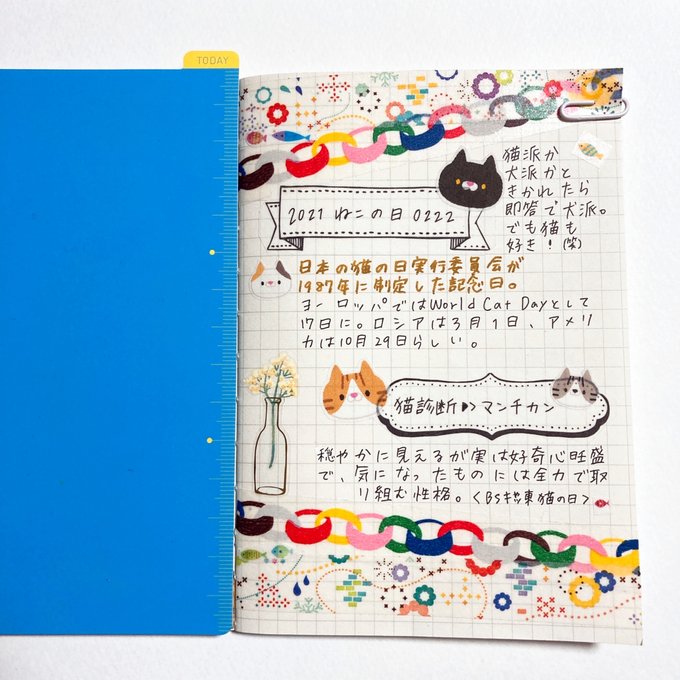 TODAY
猫派か
犬派かと
きかれたら
即答で犬派。
でも猫も
好き！(笑)
2021 ねこの日 0222
日本の猫の日実行委員会が
1987年に制定した記念日。
ヨーロッパではWorld Cat Dayとして
17日に。ロシアは3月1日、アメリ
カは10月29日らしい。
猫診断▶︎>マンチカン
穏やかに見えるが実は好奇心旺盛
で、気になったものには全力で取
り組む性格。<BS 東猫の日>